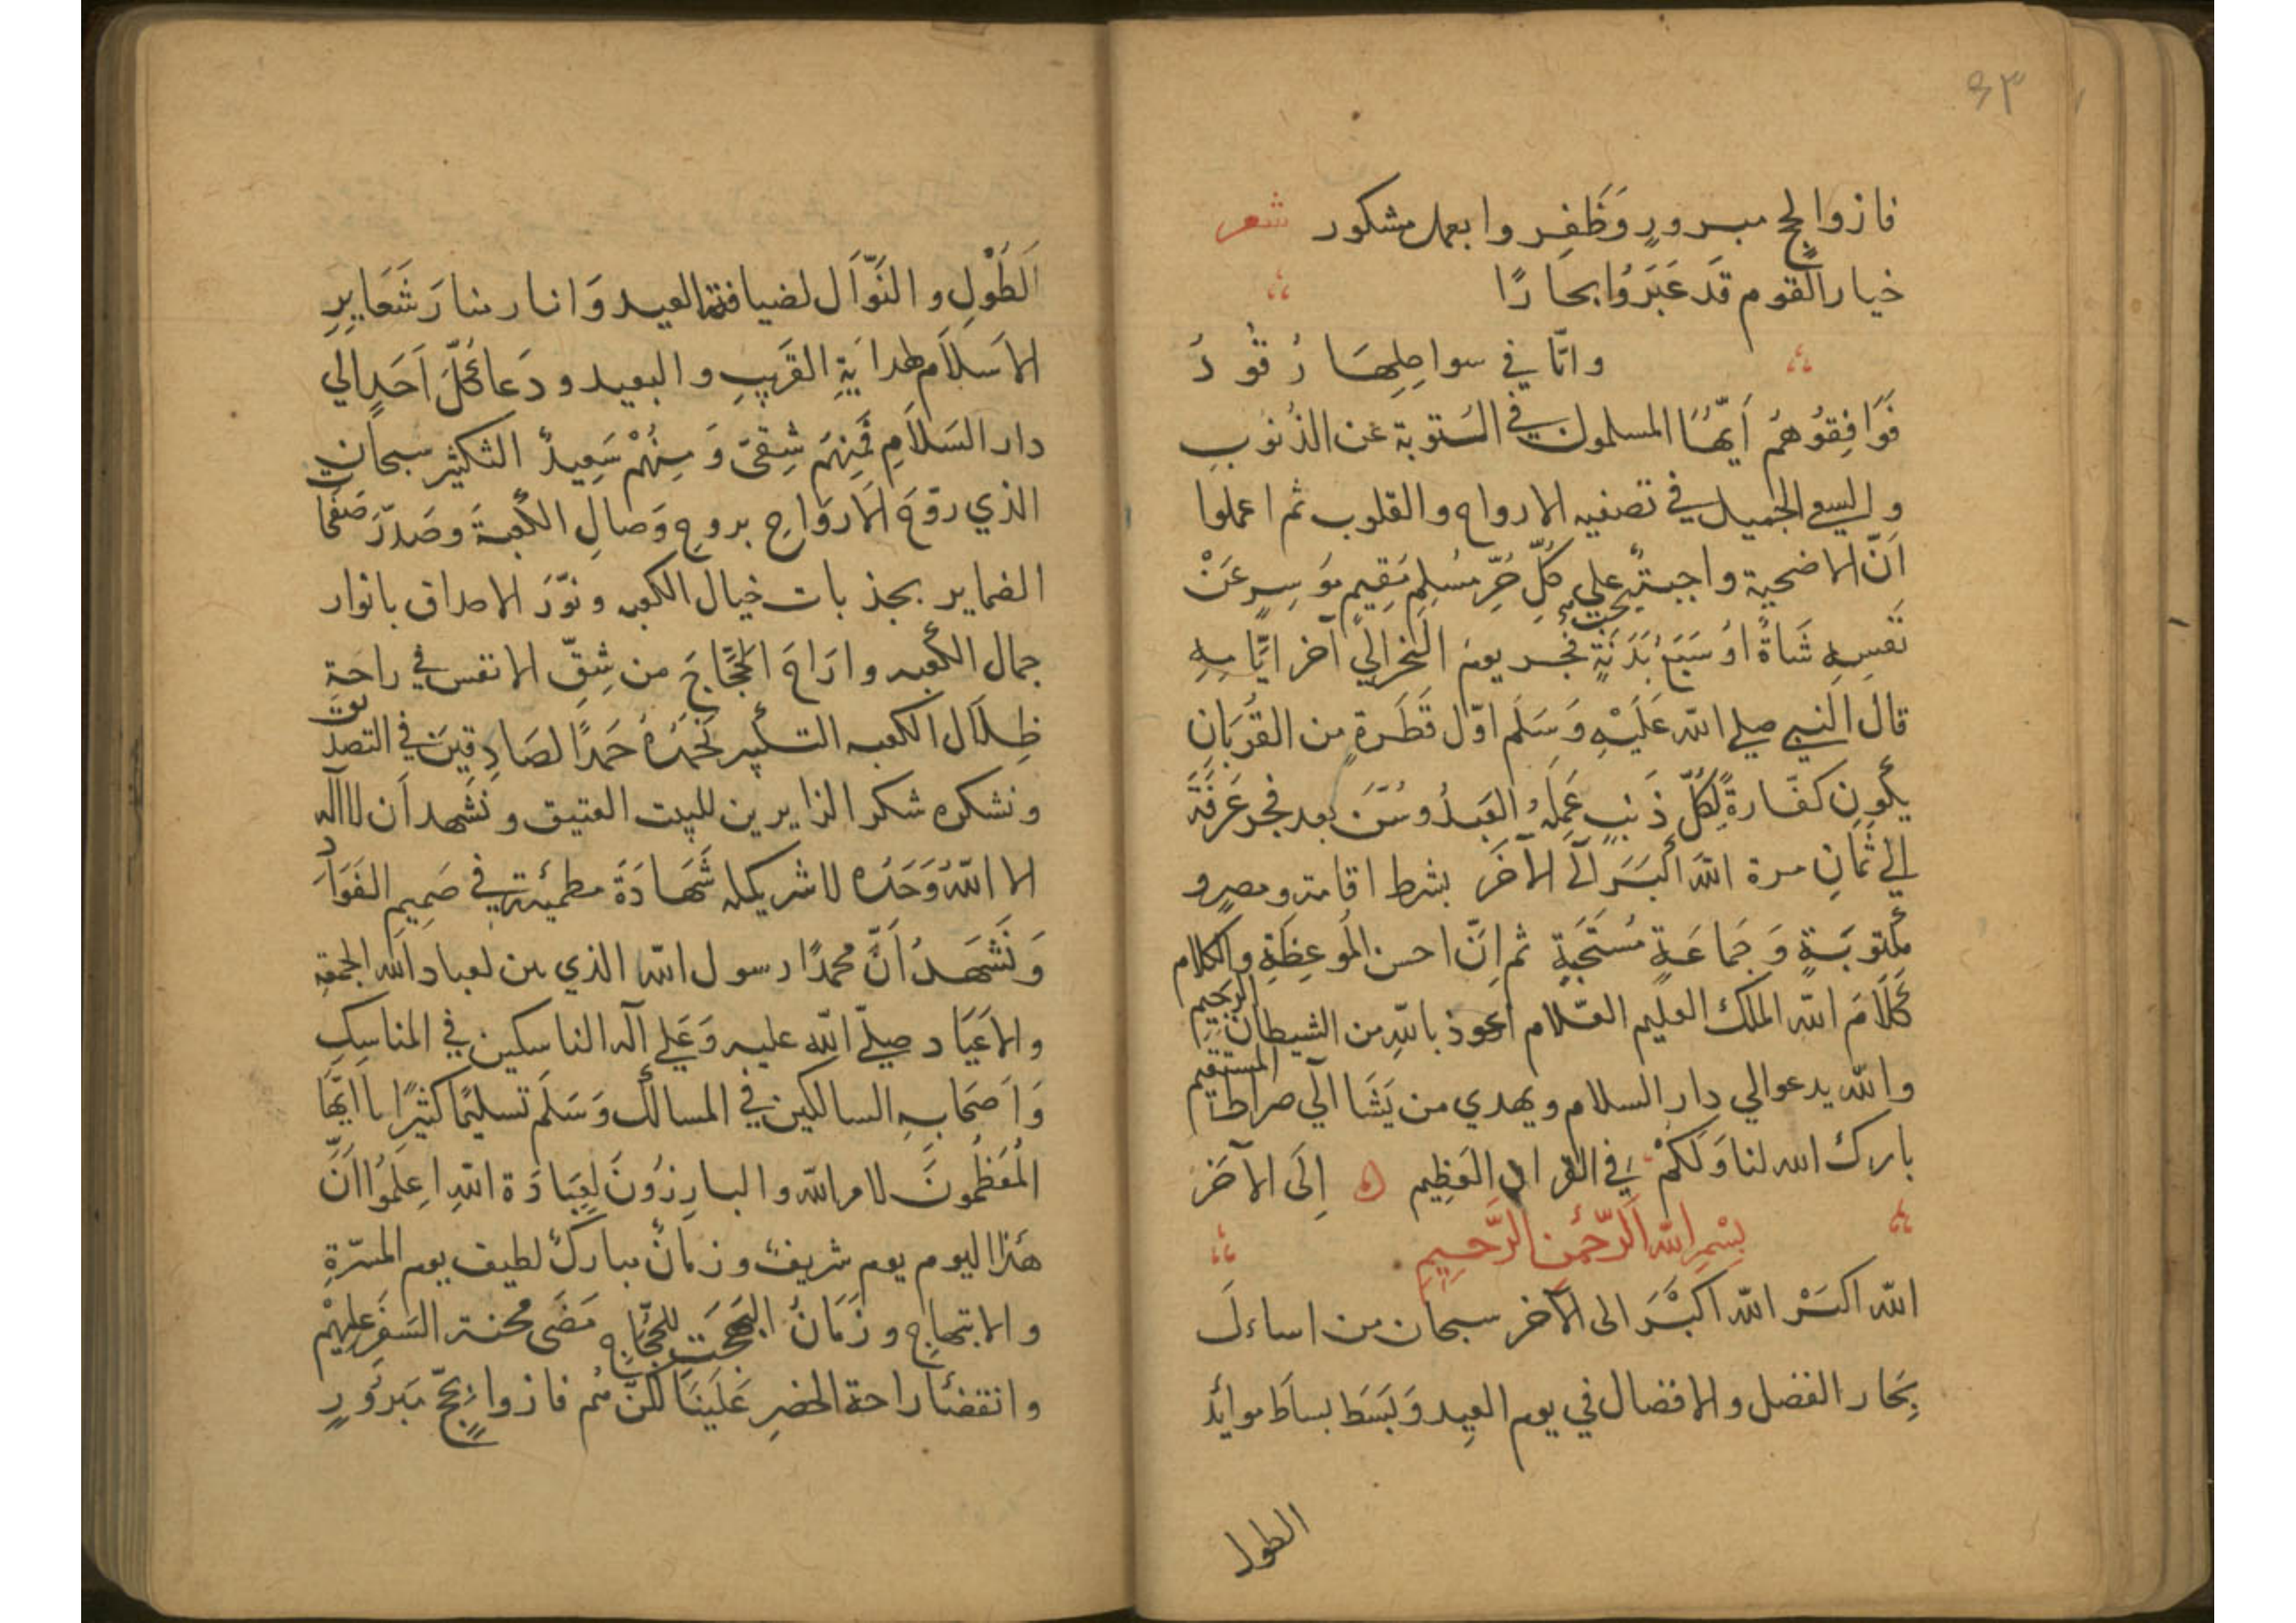 ٤٣
فازوا بحج مبرورٍ وَظَفِروا بعمل مشكور شعر
خيار القوم قَد عَبَرُوا بحارًا
وانّا في سواحِلِهَا رُقُودُ
فَوَافِقُوهُم اَيّهَا المسلمون في التوبة عن الذُنوبِ
والسعي الجميل في تصفيه الارواح والقلوب ثم اعملوا
اَنّ الاضحية واجبةٌ على كلِّ حُرٍّ مُسْلِمٍ مُقِيمٍ موُسِرٍ عَنْ
نَفسِهِ شَاةٌ اوْ سَبَع بَدَنَةٍ فجر يوم النحر الي آخر ايَّامِهِ
قال النبي صلي الله عَلَيْهِ وَسَلَّم اوّل قَطَرةٍ من القُربَانِ
يكون كفّارةً لِكُلّ ذَنبٍ عَمِلَهُ العَبدُ وسُنّ بعد فجر عَرَفَةَ
الي ثمانِ مرة الله اكْبَر اَلَى الآخَر بشرط اقامة ومصر و
مكتوبَةٍ وَجَماعَةٍ مُستَحَبّةٍ ثم اِنّ احسن المُوعِظَةِ والكلام
كَلَامَ الله الملك العليم العَلام اعوذ بالله من الشيطان الرجيم
والله يدعوالي دار السلام ويهدي من يَشَا الَي صراط المستقيم
بارك الله لنا وَلَكُمْ في القران العَظِيم اِلَى الآخَر
بِسْمِ الله الرَّحْمنِ الرَّحِيمِ
الله اكبَرْ الله اكبَر الى الآخر سبحان من اساءلَ
بِحَار الفضل والافضال في يوم العِيد وَبَسَط بساط موايُد
الطول
اَلطَوْلِ والنَوّاَل لضيافة العيد وَانار منارَ شَعَايرِ
الاسَلاَم لهدايَةِ القَريبِ والبعيد ودَعا كُلّ اَحَدٍ الي
دار السَلاَمِ فَمِنهَم شِقىّ وَمِنهُمْ سَعِيدٌ التكثير سبحان
الذي روّحَ الَارَواحِ بروحِ وَصالِ الكَعبَة وصَدّرَ صَفحَا
الضماير بجذبات خيال الكعبه ونوّرَ الاحداق بانوار
جمال الكعبه وارَاحَ الحُجّاجَ من شِقّ الانفس في راحة
ظِلاَل الكعبه التكبير نَحْمَدُهُ حَمدًا الصَادِقِينَ في التصديق
ونشكره شكر الزايرين للبيت العتيق ونَشهد اَن لا اله
الا اللهُ وَحَدَه لا شريك له شَهَادَةً مطمئنة في صَمِيمِ الفَوَادِ
وَنَشَهَدُ اَنَّ محمدًا رسول الله الذي من لعباد الله الجمعة
والاَعيَاد صلّي الله عليه وَعَلي آله الناسكين في المناسِكِ
وَاَصَحابِهِ السالكين في المسالكَ وَسَلَم تسليمًا كثيرًا يا ايّهَا
المُعَظّمُونَ لامر الله والبارِزُونَ لِعِبَادَة اللهِ اعِلَمُوا انَّ
هَذا اليوم يوم شريفٌ وزمانٌ مباركٌ لطيف يوم المسرّةِ
والابتهاج وزَمَانُ البَهجَتِ للحُجّاجِ مَضَى محنة السَفَر عليهْم
وانقضا راحة الحضرِ عَلَينَا لكنَّ هُم فازوا بحَجّ مَبرَورٍ